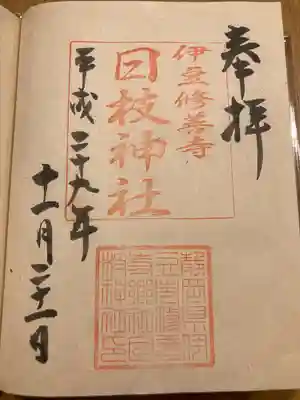 奉拝
伊豆修善寺
日枝神社
平成二十九年
十一月二十一日